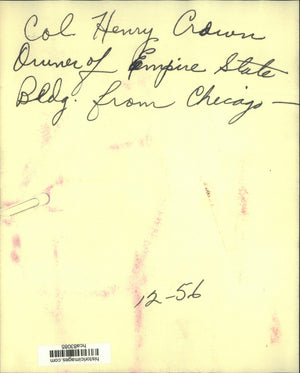 Col Henry Crown
Owner of Empire State
Bldg. from Chicago —
12-56
historicimages.com
hca83085